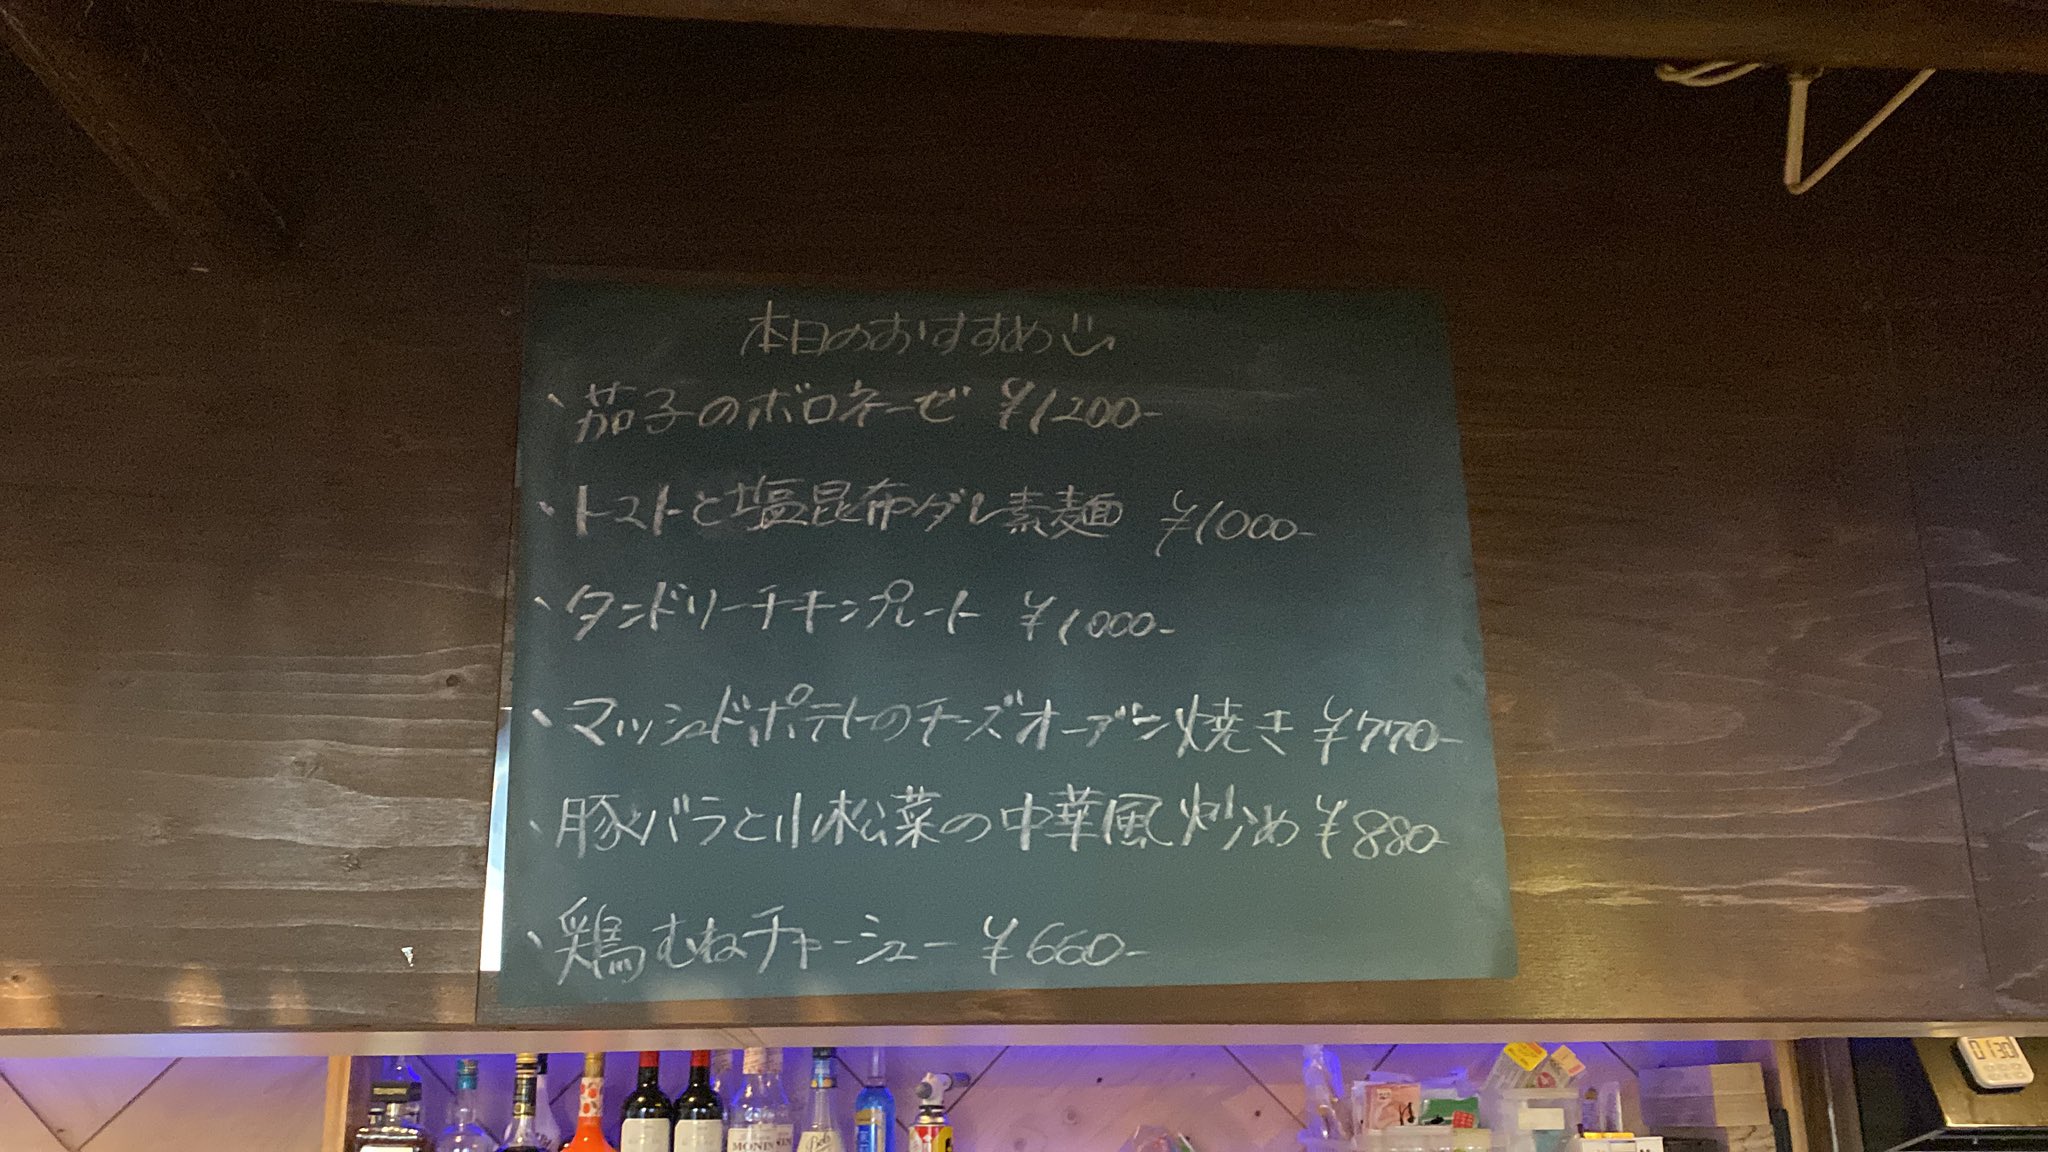 本日のおすすめ
・茄子のボロネーゼ ¥1200-
・トマトと塩昆布ダレ素麺 ¥1000-
・タンドリーチキンプレート ¥1000-
・マッシュドポテトのチーズオーブン焼き ¥770-
・豚バラと小松菜の中華風炒め ¥880-
・鶏むねチャーシュー ¥660-
MONIN
0130